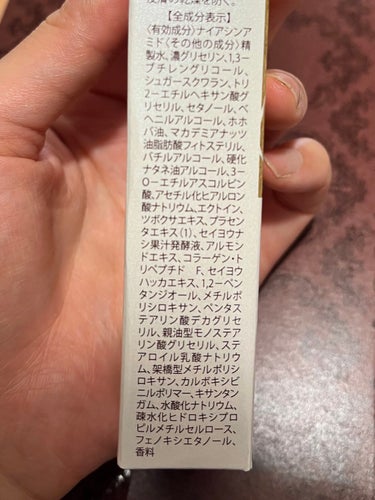 皮膚の乾燥を防ぐ。
【全成分表示】
〈有効成分〉ナイアシンア
ミド〈その他の成分〉精
製水、濃グリセリン、1,3-
ブチレングリコール、
シュガースクワラン、トリ
2-エチルヘキサン酸グ
リセリル、セタノール、ベ
ヘニルアルコール、ホホ
バ油、マカデミアナッツ
油脂肪酸フィトステリル、
バチルアルコール、硬化
ナタネ油アルコール、3-
O-エチルアスコルビン
酸、アセチル化ヒアルロン
酸ナトリウム、エクトイン、
ツボクサエキス、プラセン
タエキス(1)、セイヨウナ
シ果汁発酵液、アルモン
ドエキス、コラーゲン・ト
リペプチド F、セイヨウ
ハッカエキス、1,2-ペン
タンジオール、メチルポ
リシロキサン、ペンタス
テアリン酸デカグリセ
リル、親油型モノステア
リン酸グリセリル、ステ
アロイル乳酸ナトリウ
ム、架橋型メチルポリシ
ロキサン、カルボキシビ
ニルポリマー、キサンタン
ガム、水酸化ナトリウム、
疎水化ヒドロキシプロ
ピルメチルセルロース、
フェノキシエタノール、
香料